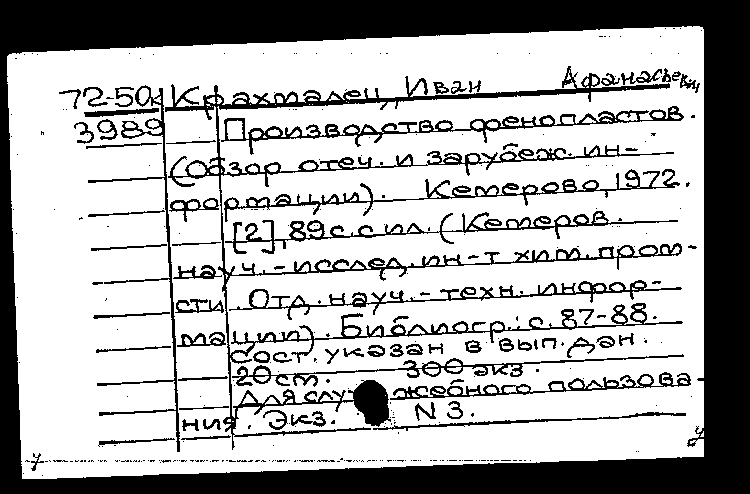 72-50к Крахмалец, Иван Афанасьевич
3989 Производство фенопластов.
(Обзор отеч. и зарубеж. ин-
формации). Кемерово, 1972.
[2], 89 с. с ил. (Кемеров.
науч.-исслед. ин-т хим. пром-
сти. Отд. науч.-техн. инфор-
мации). Библиогр.: с. 87-88.
Сост. указан в вып. дан.
20 см. 300 экз.
Для служебного пользова-
ния. Экз. N 3.
у у